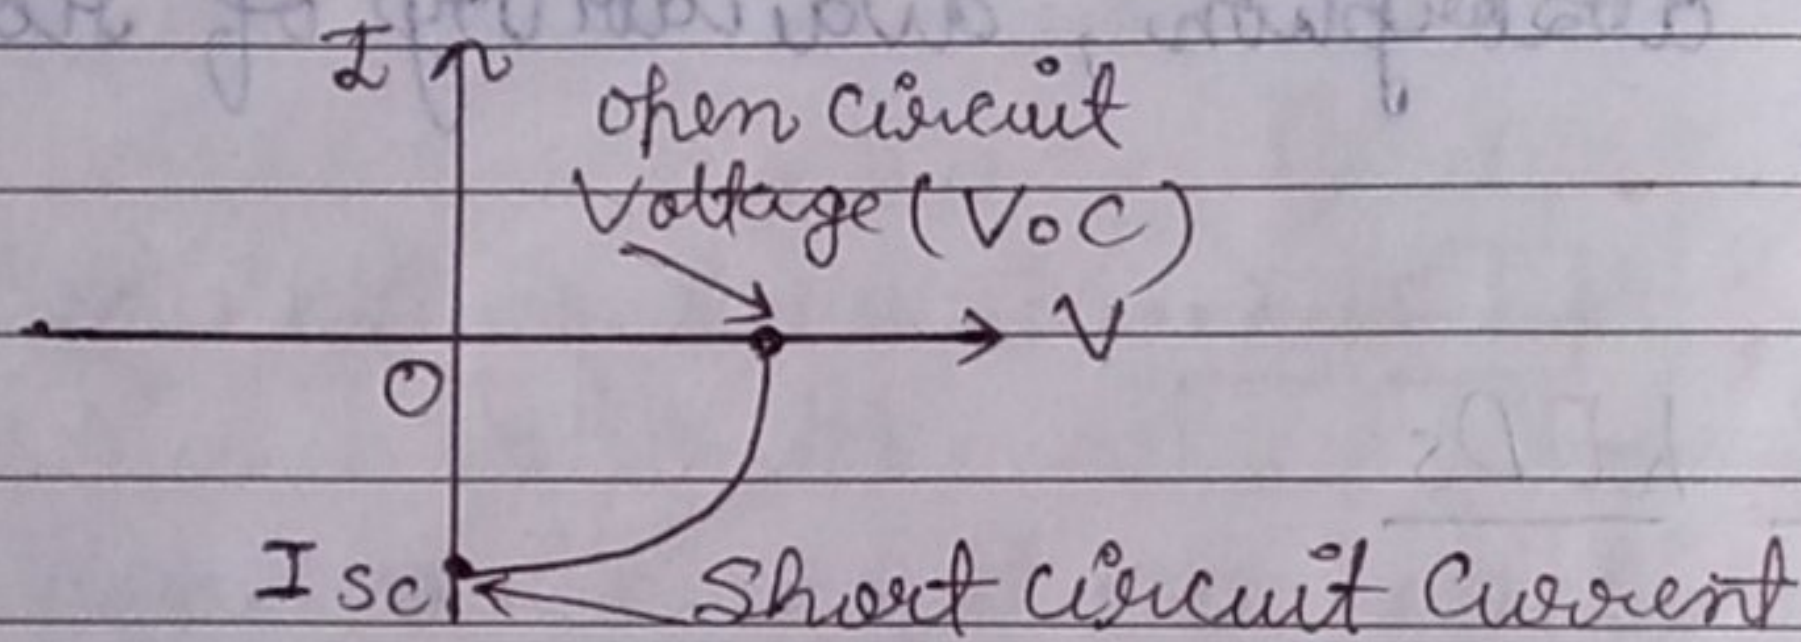 I
open circuit
Voltage (VOC)
V
O
ISC
Short circuit Current